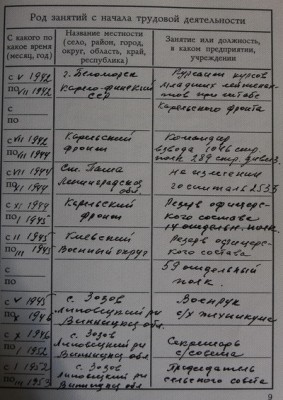 Род занятий с начала трудовой деятельности
С какого по какое время (месяц, год)
Название местности (село, район, город, округ, область, край, республика)
Занятие или должность, в каком предприятии, учреждении
с V 1942 г. Беломорск Курсант курсов
по VII 1942 Карело-Финский младших лейтенан-
ССР тов при штабе
с Карельского фронта
по
с VII 1942 Карельский Командир
по VII 1944 фронт взвода стрелк.
полк. 289 стр. дивиз.
с VII 1944 Ст. Паша на излечении
по XI 1944 Ленинградской обл. госпиталь 2533
с XI 1944 Карельский Резерв офицер-
по I 1945 фронт ского состава
14 отдельн. полк.
с II 1945 Киевский Резерв офицер-
по III 1945 Военный округ ского состава
с 59 отдельный
по полк.
с V 1945 с. Зозов Военрук
по X 1946 Липовецкий р-н с/х техникума
Винницкой обл.
с X 1946 с. Зозов Секретарь
по I 1952 Липовецкий р-н с/совета
Винницкой обл.
с I 1952 с. Зозов Председатель
по III 1953 Липовецкий р-н сельского совета
Винницкой обл.
9